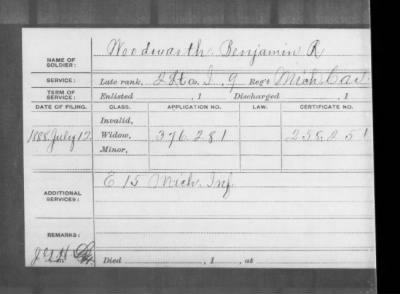 NAME OF SOLDIER: Woodwarth Benjamin R
SERVICE: Late rank, 2 Lt Co. I, 9 Reg't Mich. Cav.
TERM OF SERVICE: Enlisted , 1 Discharged , 1
DATE OF FILING. CLASS. APPLICATION NO. LAW. CERTIFICATE NO.
Invalid,
1888 July 17. Widow, 376.281 258.251
Minor,
ADDITIONAL SERVICES: E 15 Mich. Inf.
REMARKS:
Died , 1 , at